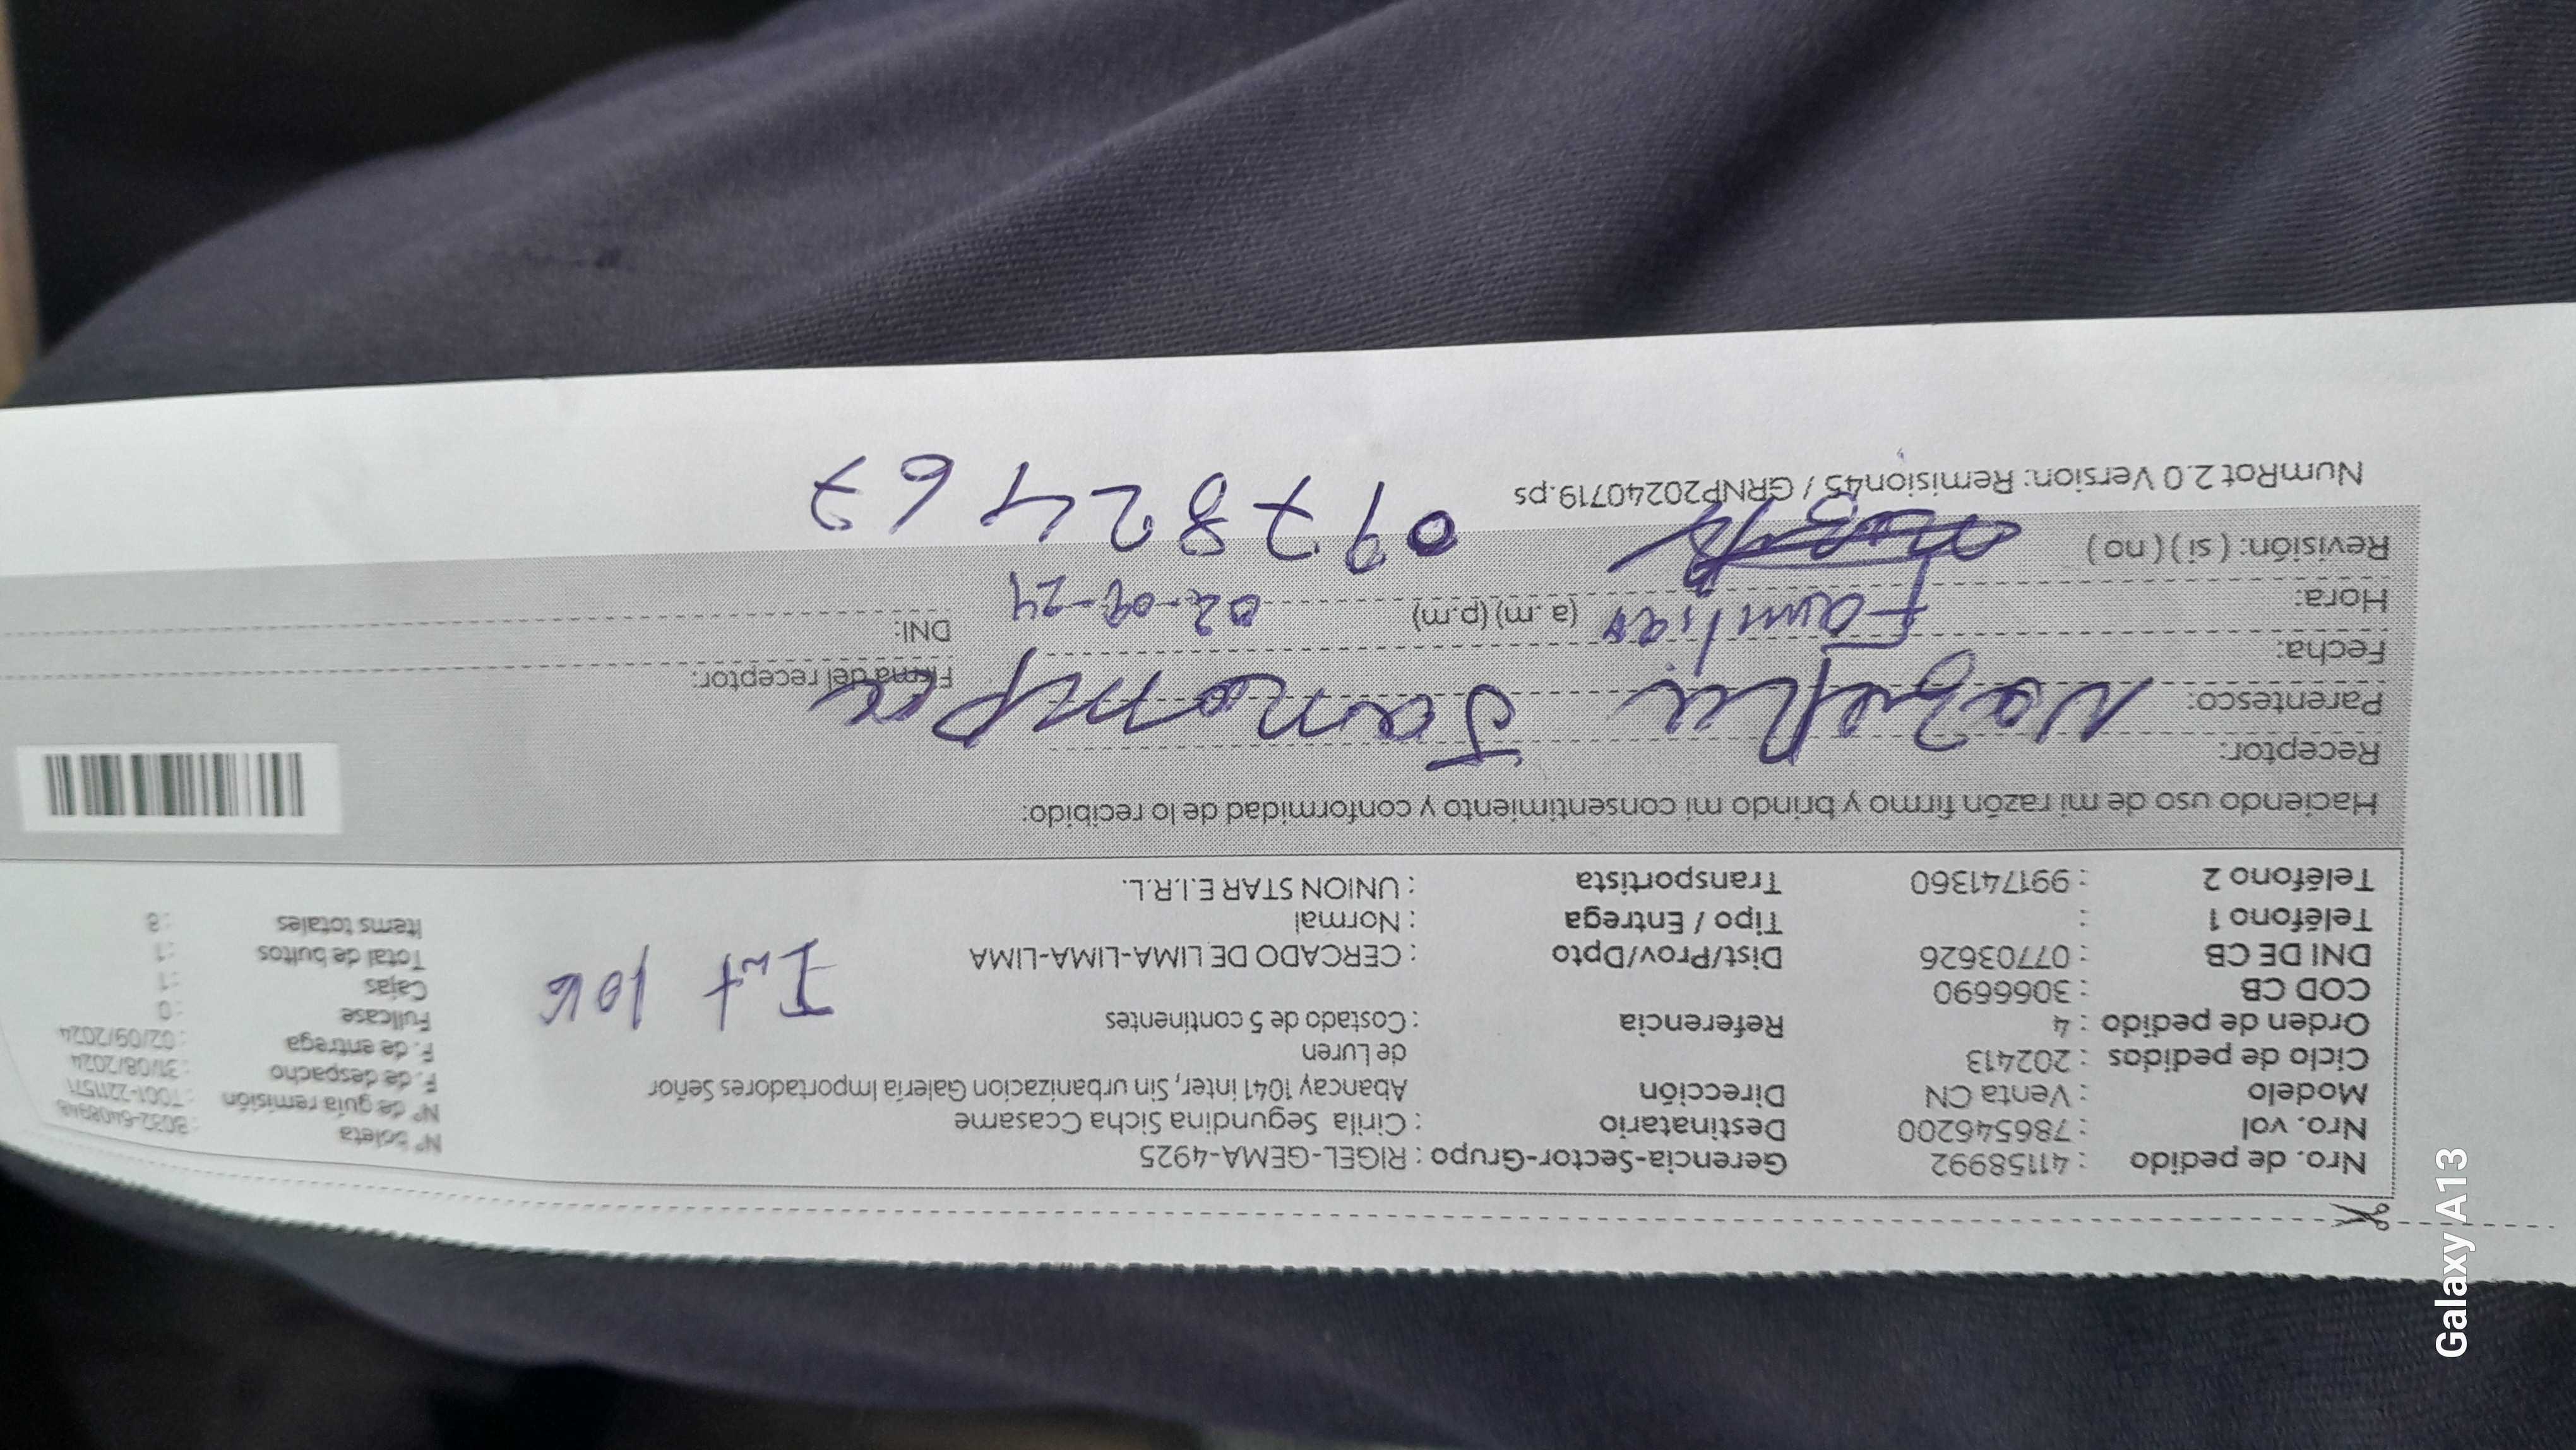 Nro. de pedido : 41158992 Gerencia-Sector-Grupo : RIGEL-GEMA-4925
Nro. vol : 786546200 Destinatario : Cirila Segundina Sicha Ccasame
Modelo : Venta CN Dirección Abancay 1041 inter, Sin urbanizacion Galeria Importadores Señor
Ciclo de pedidos : 202413 de Luren
Orden de pedido : 4 Referencia : Costado de 5 continentes
COD CB : 3066690
DNI DE CB : 07703626 Dist/Prov/Dpto : CERCADO DE LIMA-LIMA-LIMA
Teléfono 1 : Tipo / Entrega : Normal
Teléfono 2 : 991741360 Transportista : UNION STAR E.I.R.L.
Nº boleta
Nº de guia remisión : T001-2211571
F. de despacho : 31/08/2024
F. de entrega : 02/09/2024
Fullcase : 0
Cajas : 1
Total de bultos : 1
Items totales : 8
Int
Haciendo uso de mi razón firmo y brindo mi consentimiento y conformidad de lo recibido:
Receptor:
Parentesco: Firma del receptor:
Fecha: Familiar DNI:
Hora: (a.m) (p.m) 02-09-24
Revisión: ( si ) ( no )
09782467
NumRot 2.0 Version: Remision45 / GRNP20240719.ps
Galaxy A13